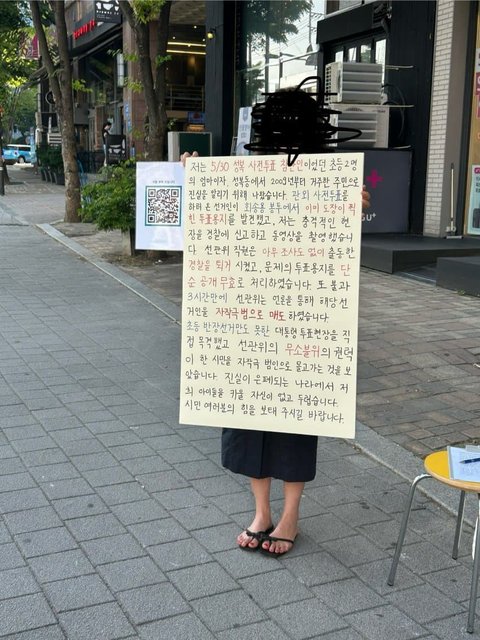 저는 5/30 성북 사전투표 참관인이었던 초등2명
의 엄마이자, 성북동에서 2003년부터 거주한 주민으로
진실을 알리기 위해 나왔습니다. 관외 사전투표를
하러 온 선거인이 회송용 봉투에서 이미 도장이 찍
힌 투표용지를 발견했고, 저는 충격적인 현
장을 경찰에 신고하고 동영상을 촬영했습니
다. 선관위 직원은 아무 조사도 없이 출동한
경찰을 퇴거 시켰고, 문제의 투표용지를 단
순 공개 무효로 처리하였습니다. 또 불과
3시간만에 선관위는 언론을 통해 해당선
거인을 자작극 범으로 매도 하였습니다.
초등 반장선거만도 못한 대통령 투표현장을 직
접 목격했고 선관위의 무소불위의 권력
이 한 시민을 자작극 범인으로 몰고가는 것을 보
았습니다. 진실이 은폐되는 나라에서 저
희 아이들을 키울 자신이 없고 두렵습니다.
시민 여러분의 힘을 보태 주시길 바랍니다.